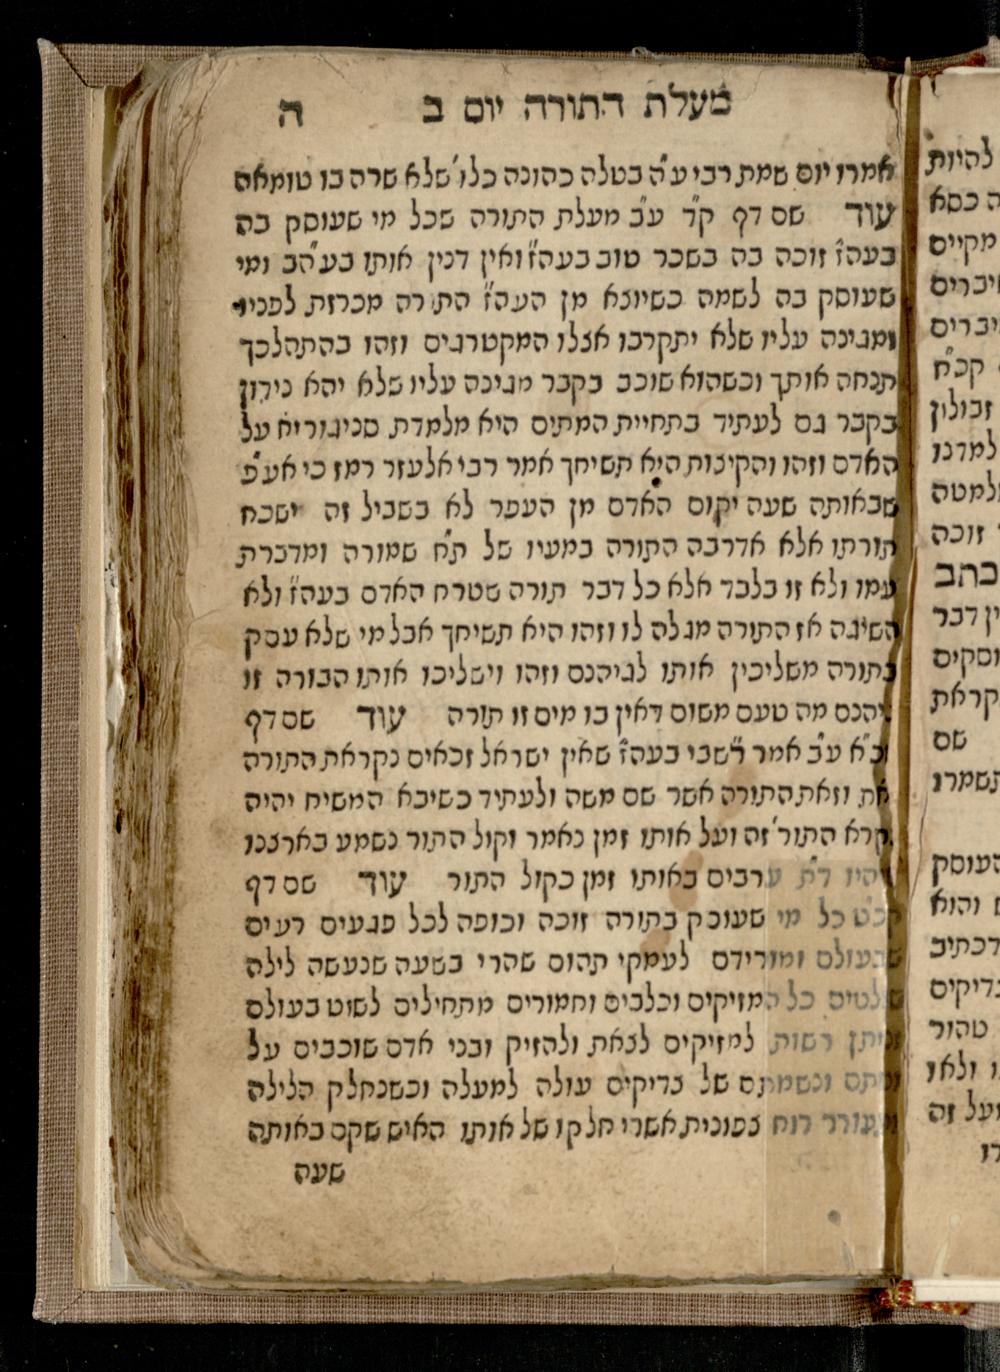 מעלת התורה יום ב ה
אמרו יום שמת רבי ע״ה בטלה כהונה כלו׳ שלא שרה בו טומאה
עוד שם דף ק״ד ע״ב מעלת התורה שכל מי שעוסק בה
בעה״ז זוכה בה בשכר טוב בעה״ז ואין דנין אותו בע״הב ומי
שעוסק בה לשמה כשיוצא מן העה״ז התורה מכרזת לפניו
ומגינה עליו שלא יתקרבו אצלו המקטרגים וזהו בהתהלכך
תנחה אותך וכשהוא שוכב בקבר מגינה עליו שלא יהא נירון
בקבר גם לעתיד בתחיית המתים היא מלמדת סניגוריא על
האדם וזהו והקיצות היא תשיחך אמר רבי אלעזר רמז כי אע״פ
שבאותה שעה יקום האדם מן העפר לא בשביל זה ישכח
תורתו אלא אדרבה התורה במעיו של ת״ח שמורה ומדברת
עמו ולא זו בלבד אלא כל דבר תורה שטרח האדם בעה״ז ולא
השיגה אז התורה מגלה לו וזהו היא תשיחך אבל מי שלא עסק
בתורה משליכין אותו לגיהנם וזהו וישליכו אותו הבורה זו
גיהנם מה טעם משום דאין בו מים זו תורה עוד שם דף
וכ״א ע״ב אמר רשבי בעה״ז שאין ישראל זכאים נקראת התורה
את וזאת התורה אשר שם משה ולעתיד כשיבא המשיח יהיה
נקרא התור׳ זה ועל אותו זמן נאמר וקול התור נשמע בארצנו
ויהיו ד״ת ערבים באותו זמן כקול התור עוד שם דף
כל מי שעוסק בתורה זוכה וכופה לכל פגעים רעים
שבעולם ומורידם לעמקי תהום שהרי בשעה שנעשה לילה
שולטים כל המזיקים וכלבים וחמורים מתחילים לשוט בעולם
וניתן רשות למזיקים לצאת ולהזיק ובני אדם שוכבים על
מטתם ונשמתם של צדיקים עולה למעלה וכשנחלק הלילה
מתעורר רוח צפונית אשרי חלקו של אותו האיש שקם באותה
שעה
להיות
ה כסא
מקיים
זבולון
למטה
זוכה
כתב
ין דבר
וסקים
קראת
שם
תשמרו
העוסק
והוא
דכתיב
טהור
ולאו
ועל זה